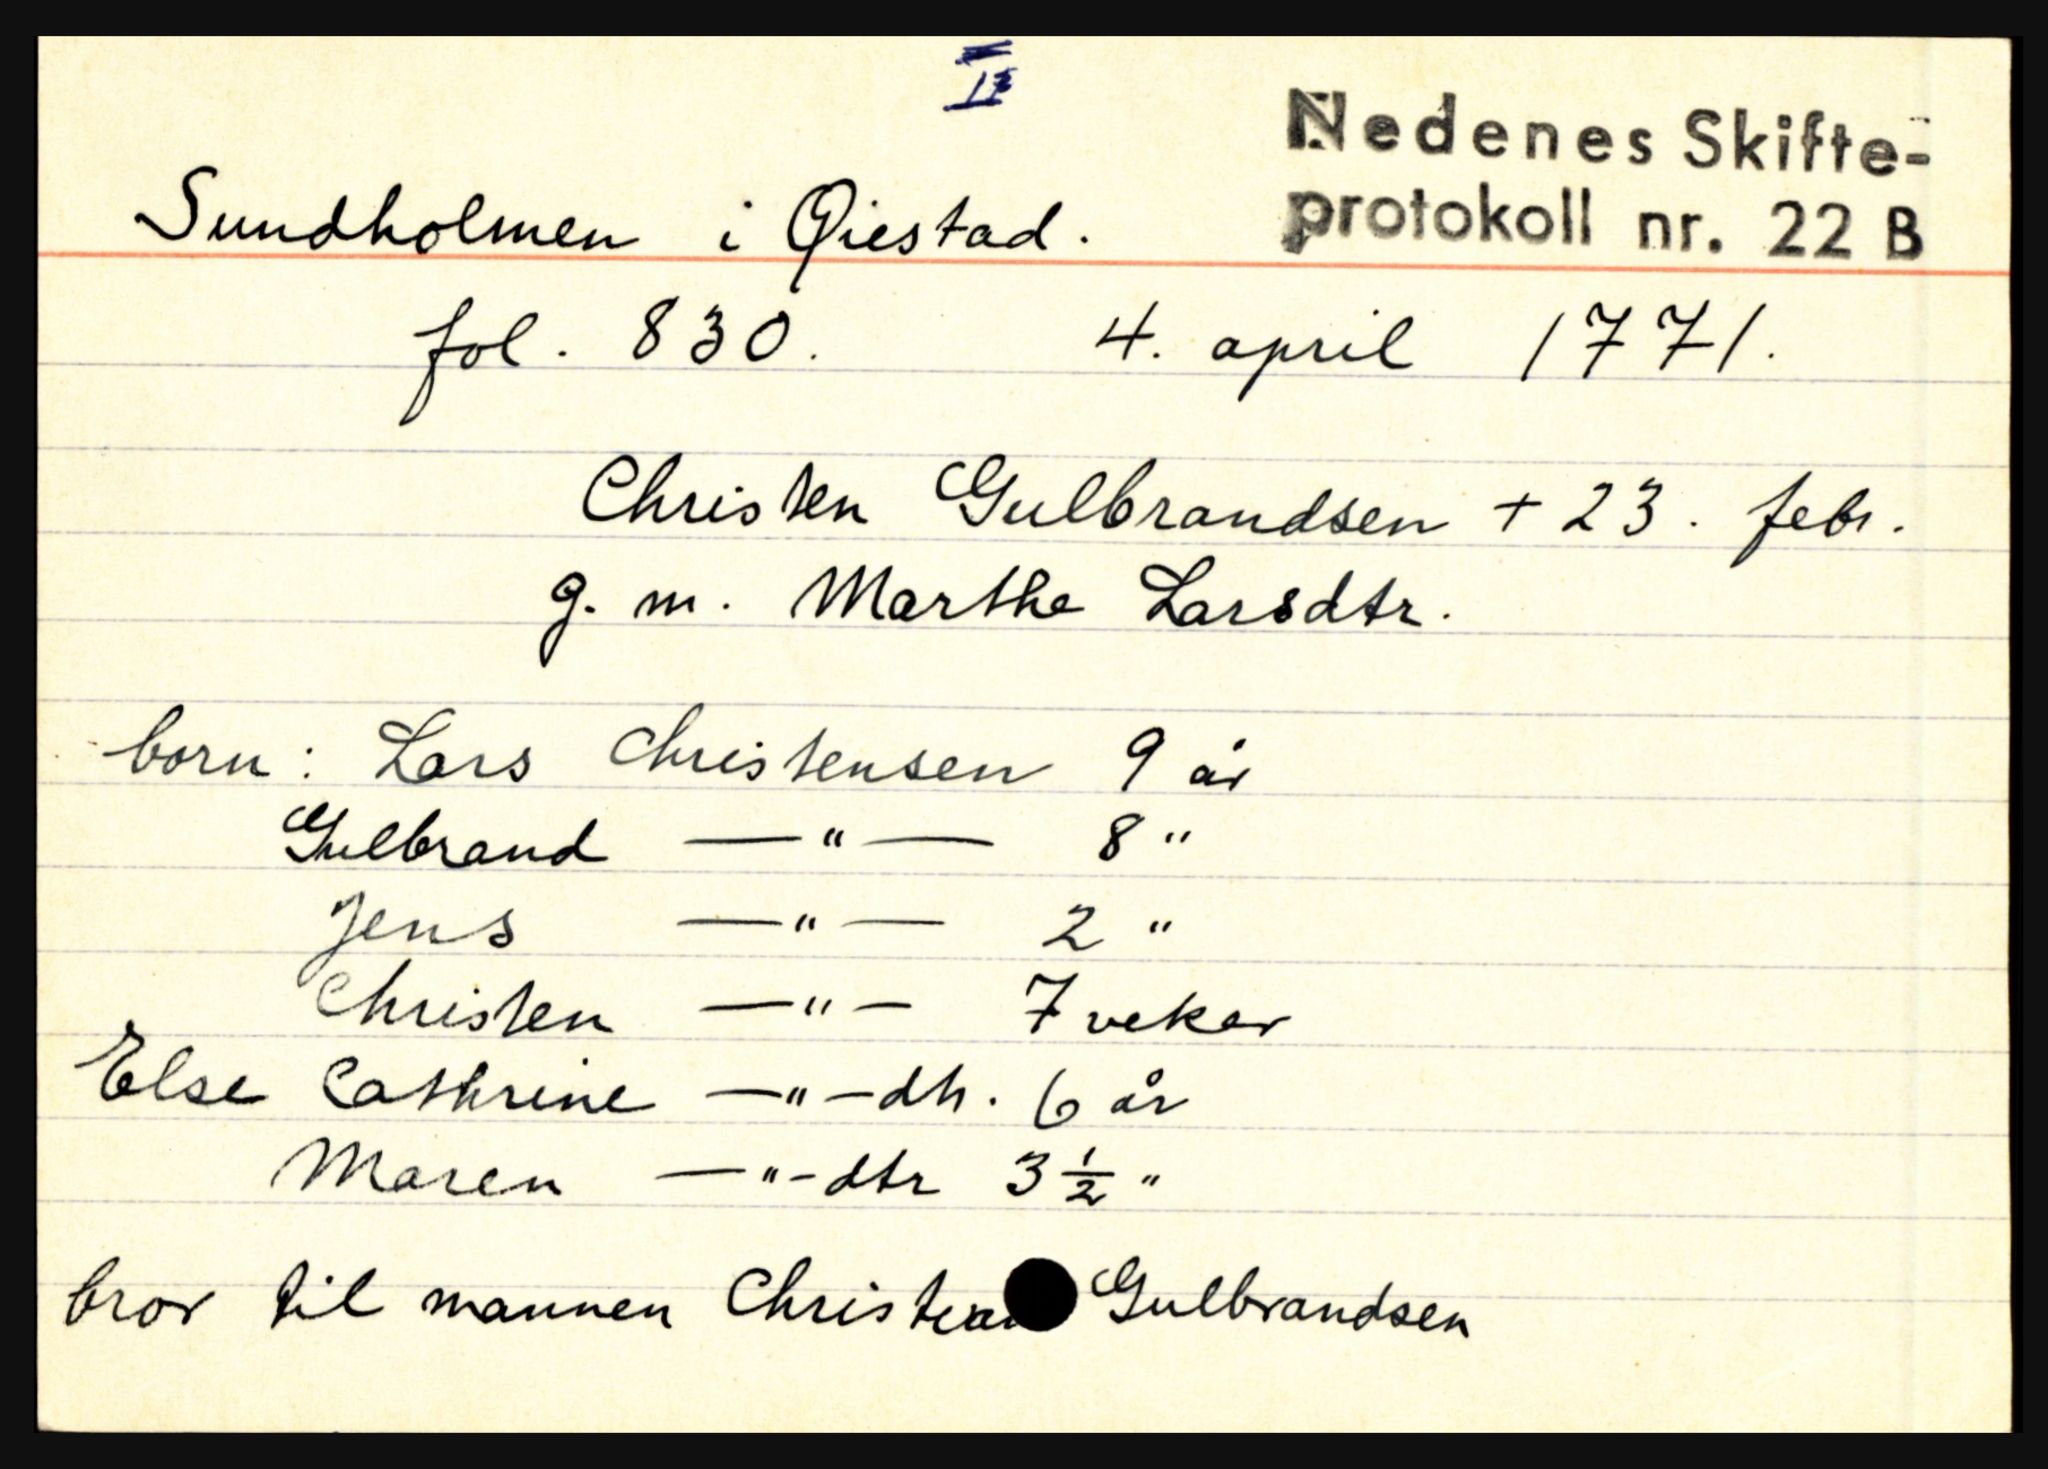 Nedenes Skifte-
protokoll nr. 22 B
Sundholmen i Øiestad.
fol. 830. 4. april 1771.
Christen Gulbrandsen + 23. febr.
g. m. Marthe Larsdtr.
born: Lars Christensen 9 år
Gulbrand —"— 8 "
Jens —"— 2 "
Christen —"— 7 veker
Else Cathrine —"—dtr. 6 år
Maren —"-dtr 3 1/2 "
bror til mannen Gulbrandsen